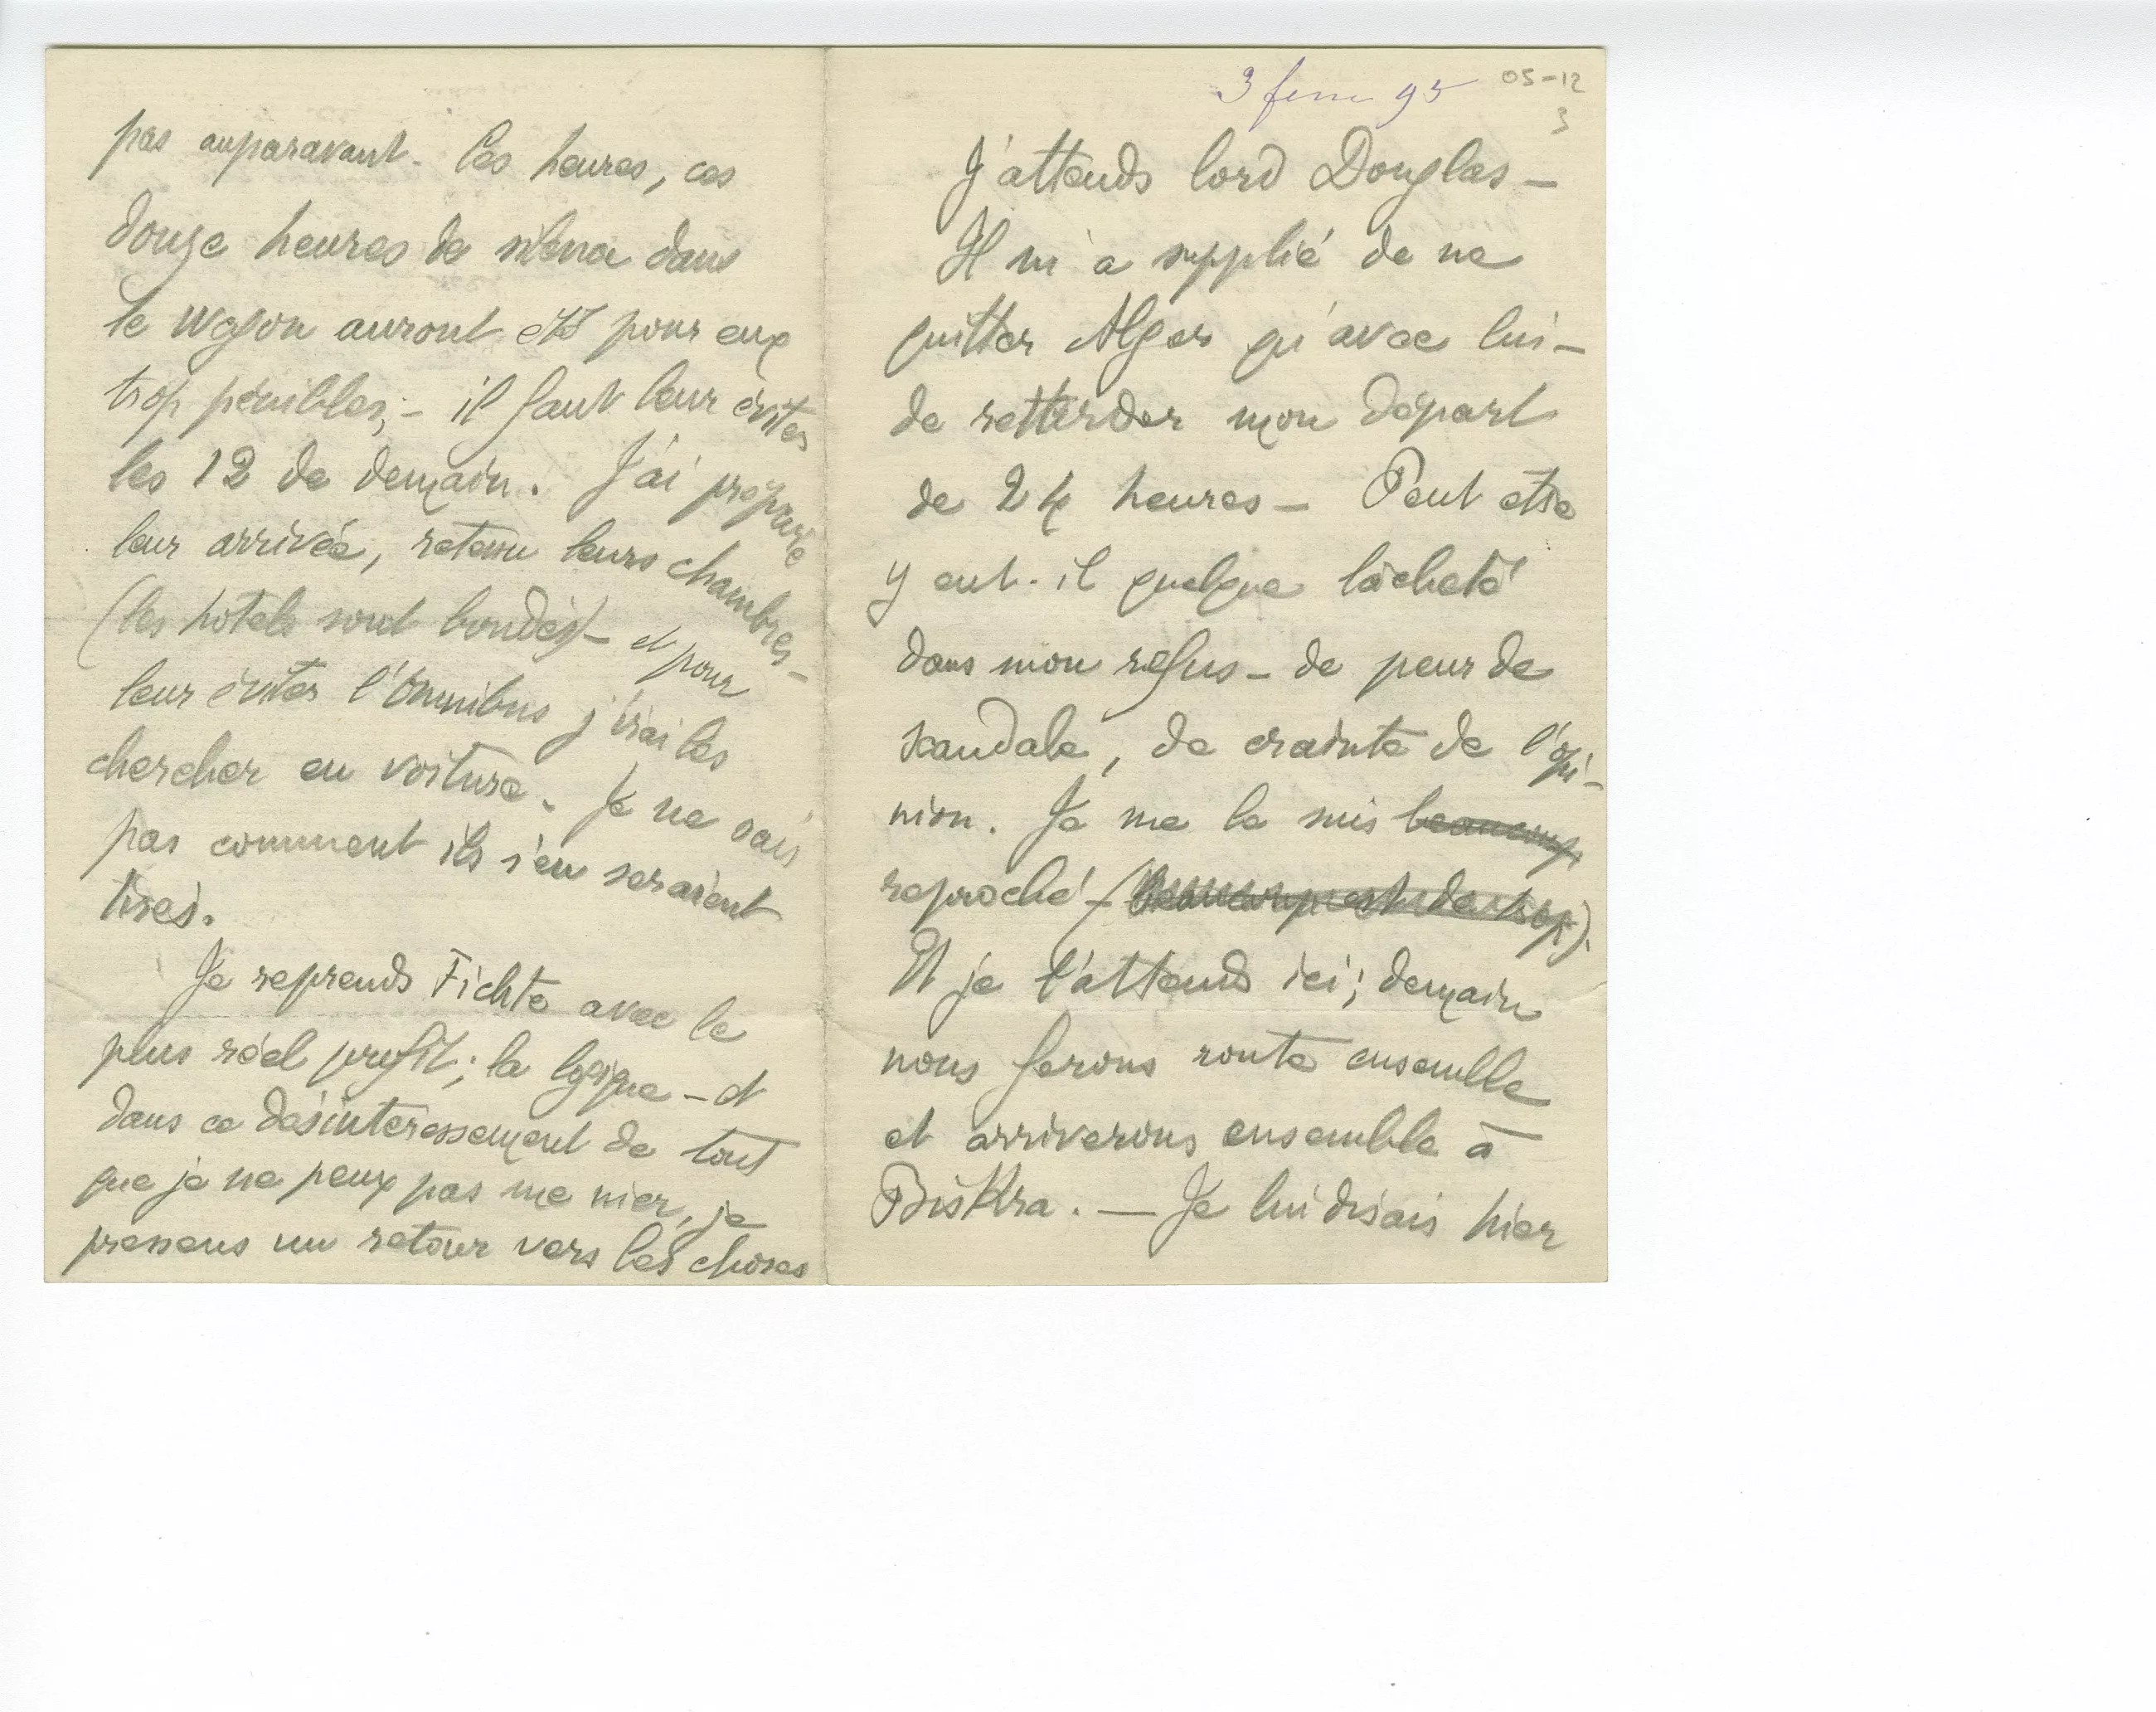 pas auparavant. Ces heures, ces
douze heures de silence dans
le wagon auront été pour eux
trop pénibles; – il faut leur éviter
les 12 de demain. J'ai préparé
leur arrivée, retenu leurs chambres –
(les hotels sont bondés) – et pour
leur éviter l'omnibus j'irai les
chercher en voiture. Je ne sais
pas comment ils s'en seraient
tirés.
Je reprends Fichte avec le
plus réel profit; la logique – et
dans ce désintéressement de tout
que je ne peux pas me nier, je
pressens un retour vers les choses
3 fevr 95 05-12
3
J'attends lord Douglas –
Il m'a supplié de ne
quitter Alger qu'avec lui –
de retarder mon départ
de 24 heures – Peut etre
y eut-il quelque lâcheté
dans mon refus – de peur de
scandale, de crainte de l'opi-
nion. Je me le suis beaucoup
reproché – (beaucoup est de trop).
Et je l'attends ici; demain
nous ferons route ensemble
et arriverons ensemble à
Biskra. — Je lui disais hier